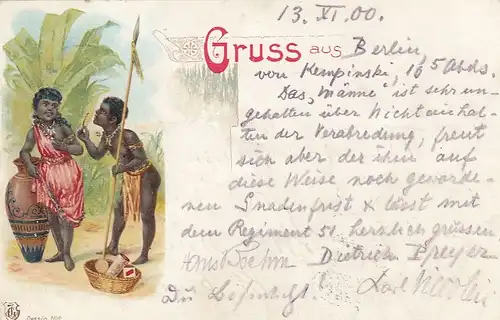 13. XI. 00.
Gruss aus Berlin,
von Kempinski, 16 5 Abds.
Das „Männe" ist sehr un-
gehalten über Nichteinhal-
ten der Verabredung, freut
sich aber der ihm auf
diese Weise noch geworde-
nen Gnadenfrist & lässt mit
dem Regiment 51. herzlich grüssen
Dietrich Breyer
Du